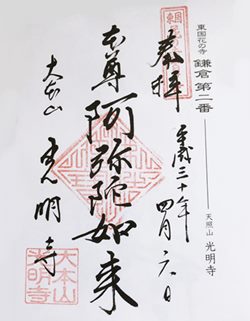 東国花の寺
鎌倉第二番
天照山 光明寺
奉拝
平成三十年四月六日
本尊阿弥陀如来
大本山
光明寺
大本山
光明寺